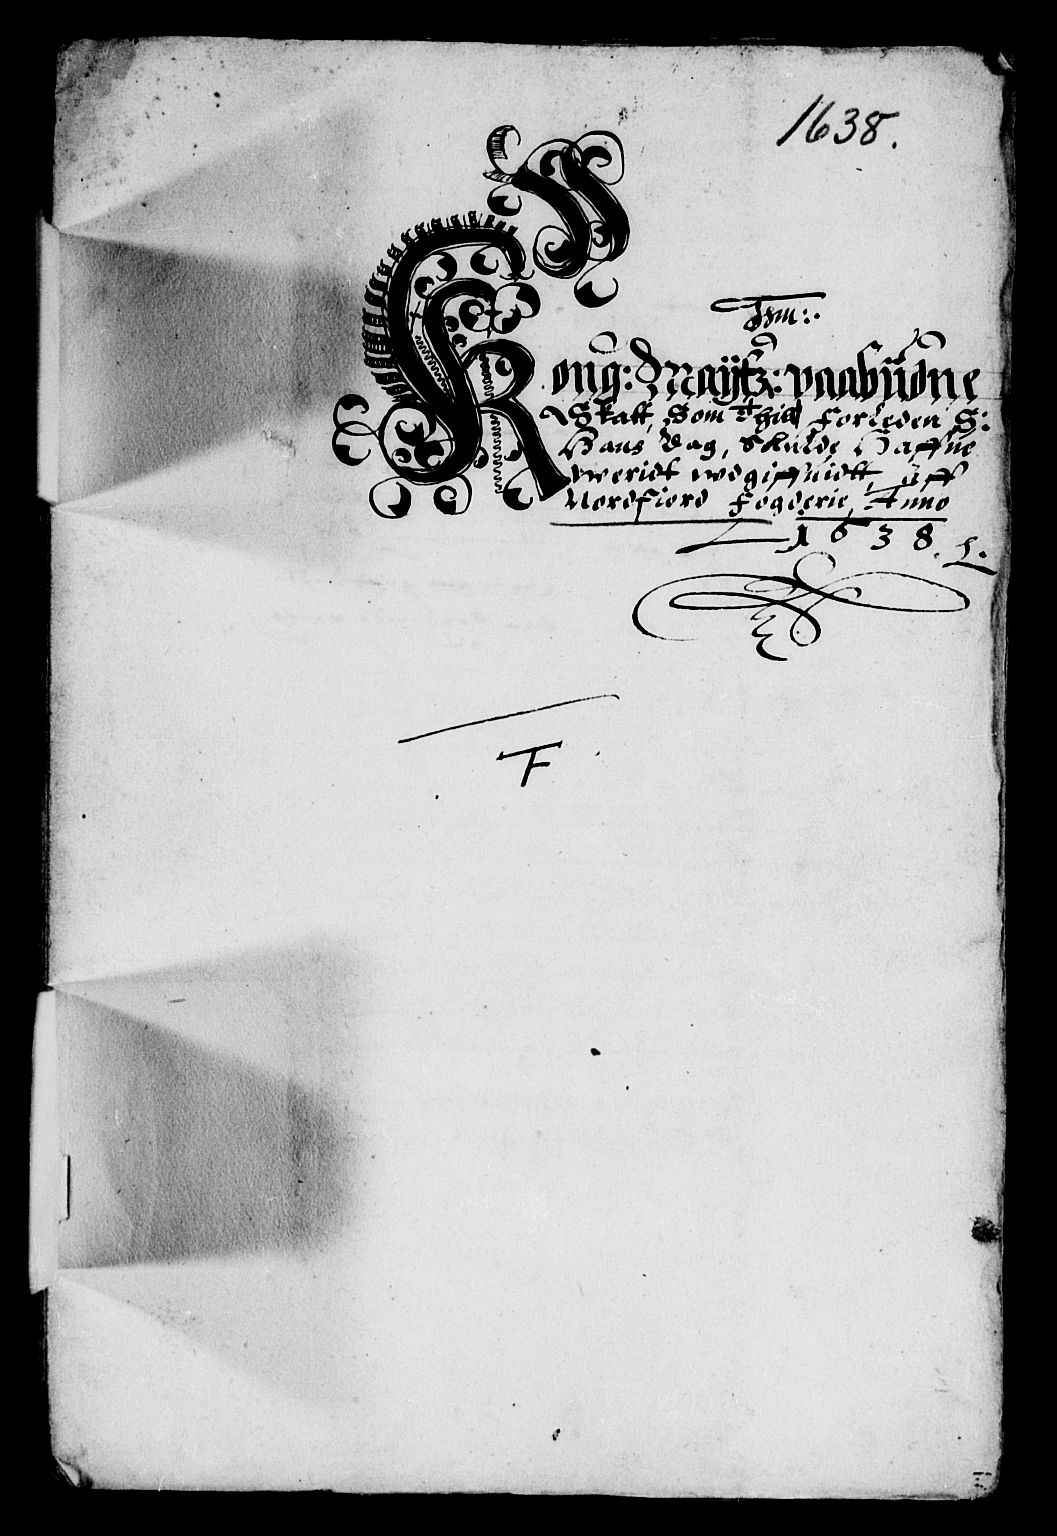 1638.
Kong: Maytz: paabudne
Skatt, Som Thill Forleden S:
Hans Dag, Skulde Haffue
weridt wdgiffuidtt, Aff
Nordfiord Fogderie, Anno
1638.
F